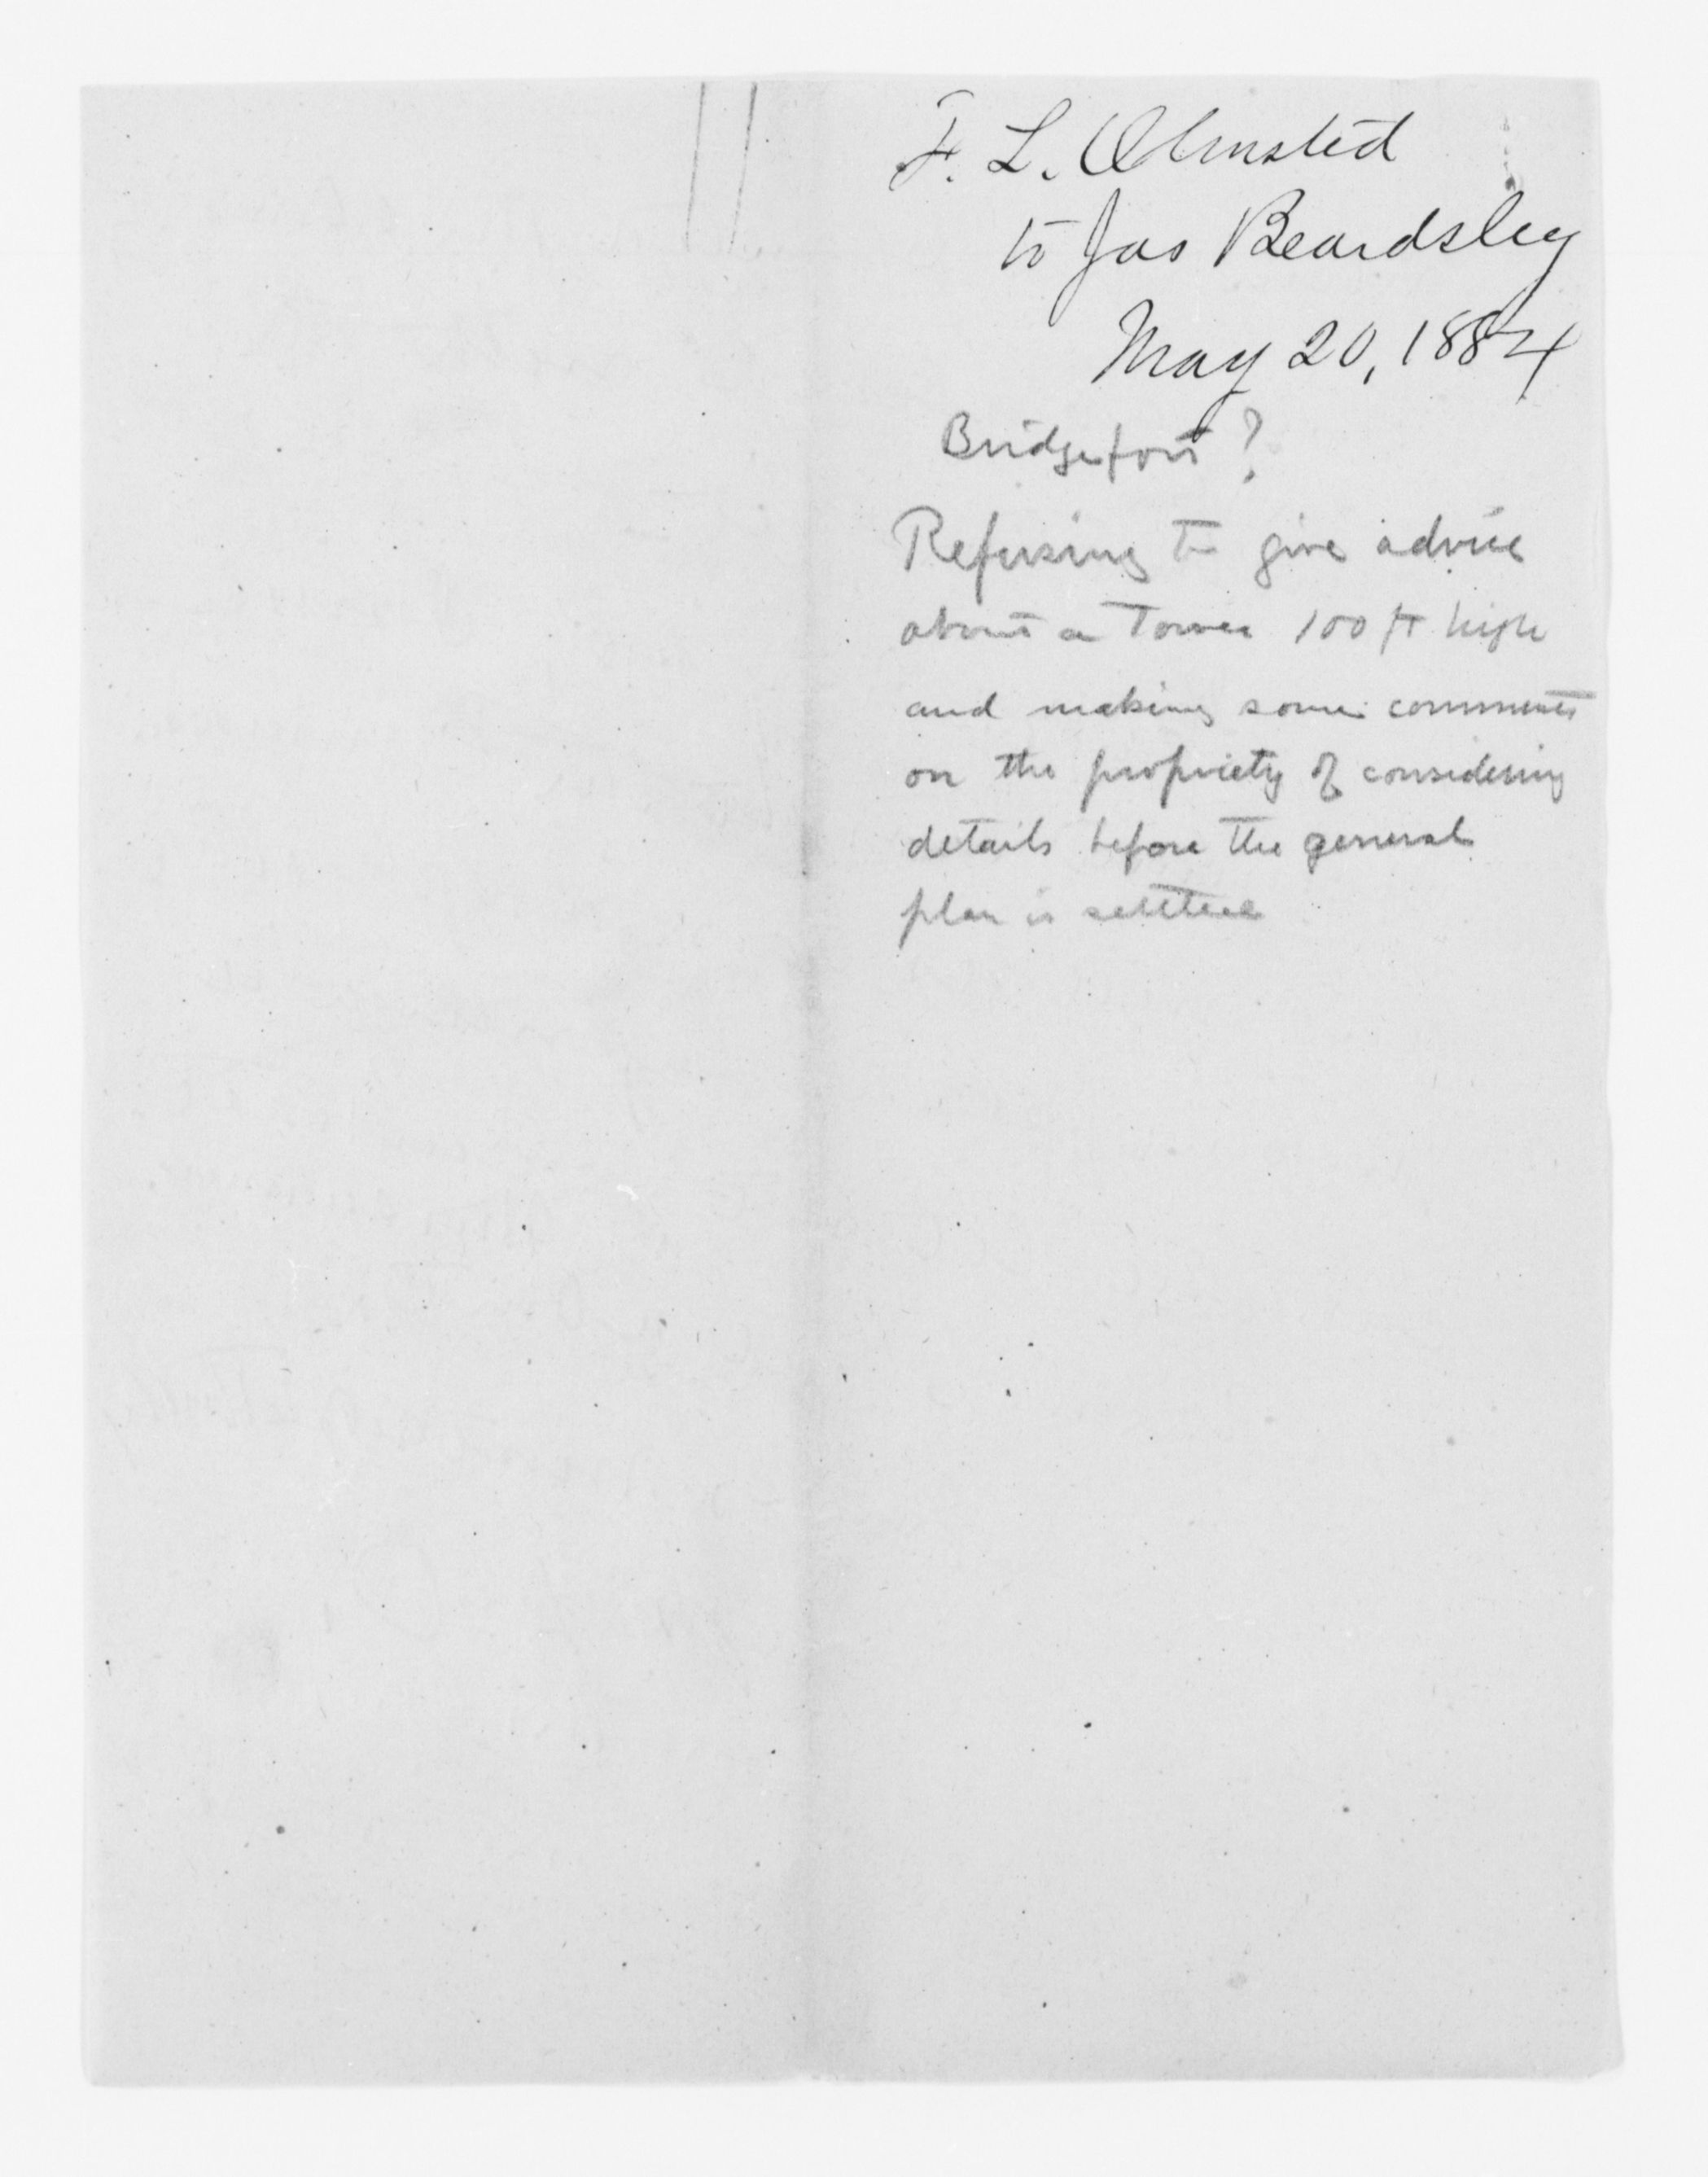 F. L. Olmsted
to Jas Beardsley
May 20, 1884
Bridgeport?
Refusing to give advice
about a Tower 100 ft high
and making some comments
on the propriety of considering
details before the general
plan is settled